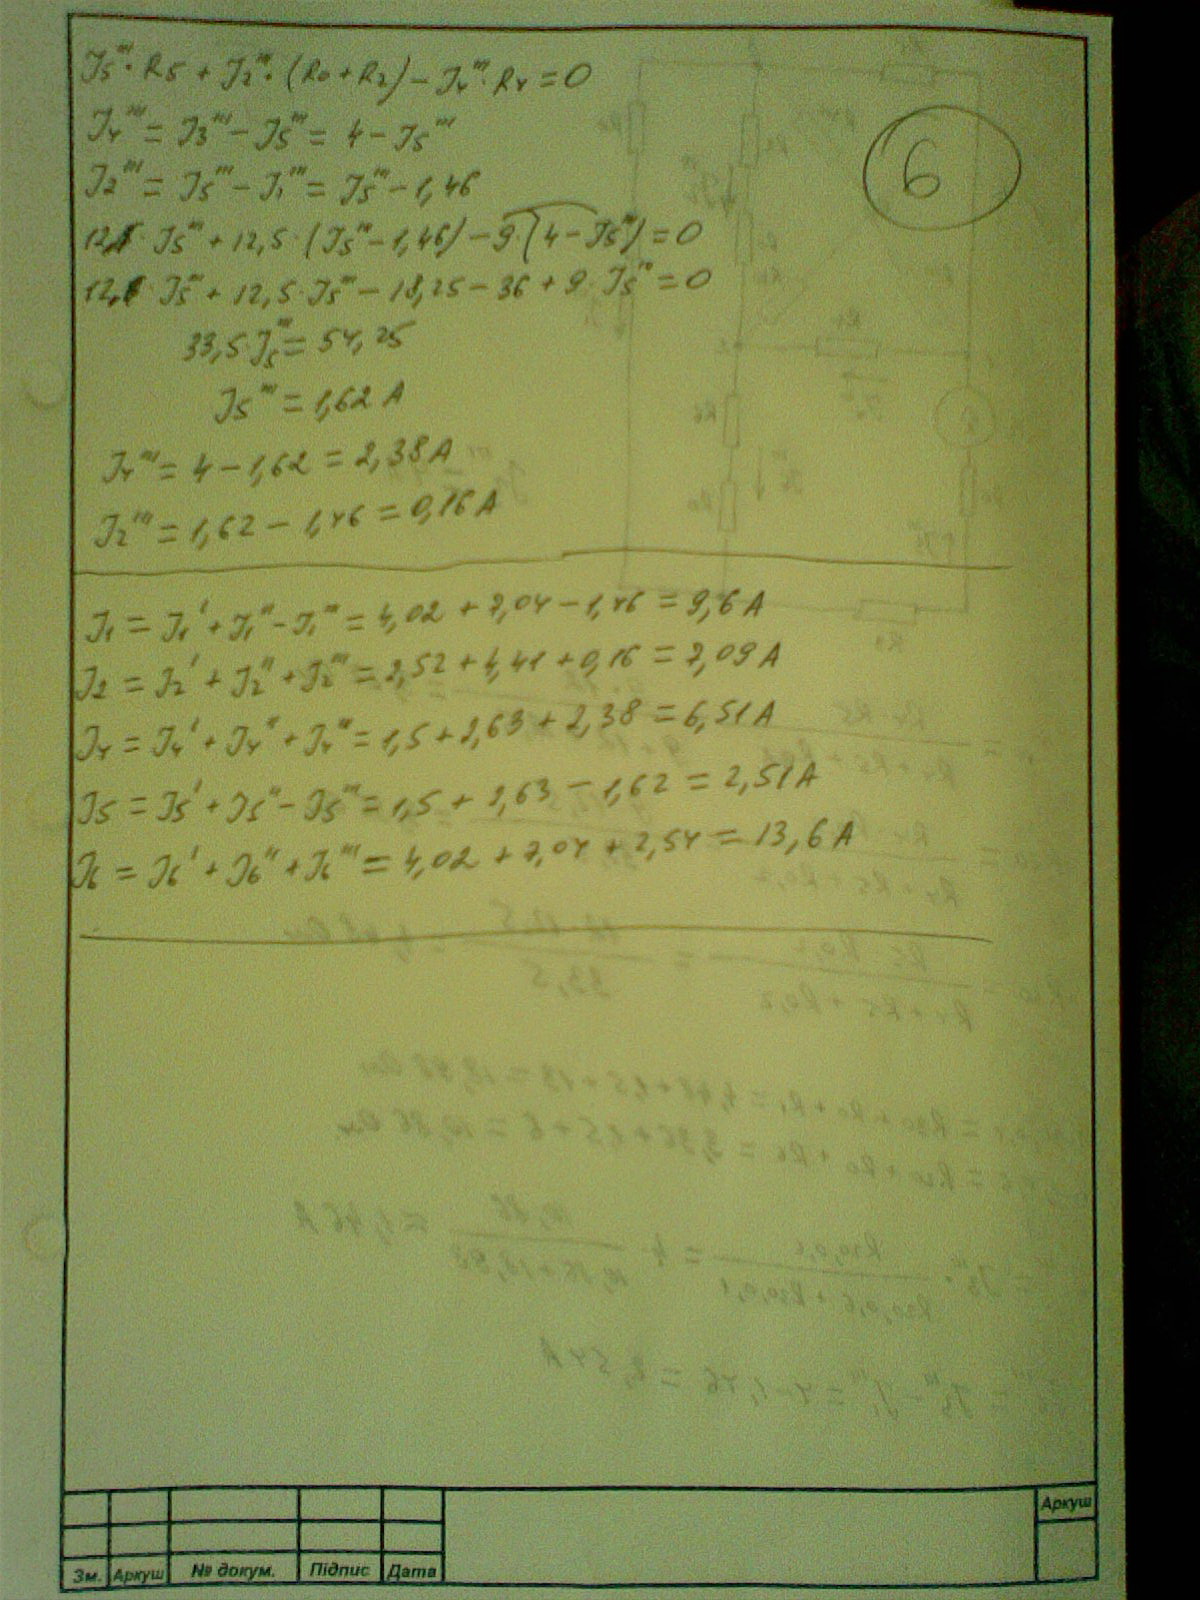 J5''' · R5 + J2''' · (R0 + R2) – J4''' · R4 = 0
J4''' = J3''' – J5''' = 4 – J5'''
J2''' = J5''' – J1''' = J5''' – 1,46
6
12 · J5''' + 12,5 · (J5''' – 1,46) – 9 · (4 – J5''') = 0
12 · J5''' + 12,5 · J5''' – 18,25 – 36 + 9 · J5''' = 0
33,5 · J5''' = 54,25
J5''' = 1,62 A
J4''' = 4 – 1,62 = 2,38 A
J2''' = 1,62 – 1,46 = 0,16 A
J1 = J1' + J1'' – J1''' = 4,02 + 7,04 – 1,46 = 9,6 A
J2 = J2' + J2'' + J2''' = 2,52 + 4,41 + 0,16 = 7,09 A
J4 = J4' + J4'' + J4''' = 1,5 + 2,63 + 2,38 = 6,51 A
J5 = J5' + J5'' – J5''' = 1,5 + 2,63 – 1,62 = 2,51 A
J6 = J6' + J6'' + J6''' = 4,02 + 7,04 + 2,54 = 13,6 A
Аркуш
Зм. Аркуш № докум. Підпис Дата